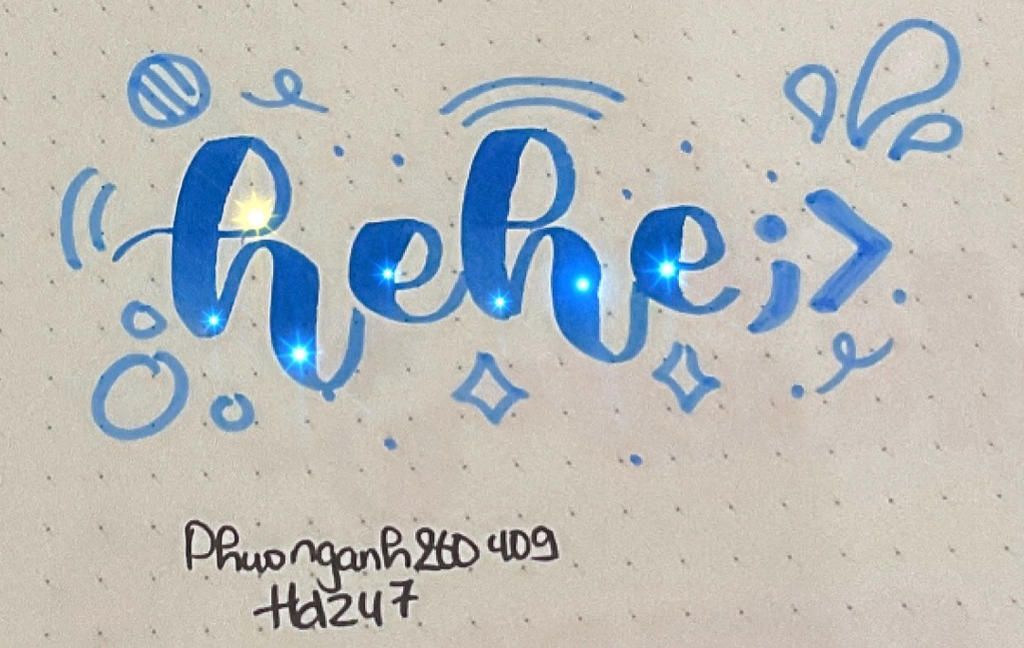 hehe ;>
Phuonganh260409
Hdz47